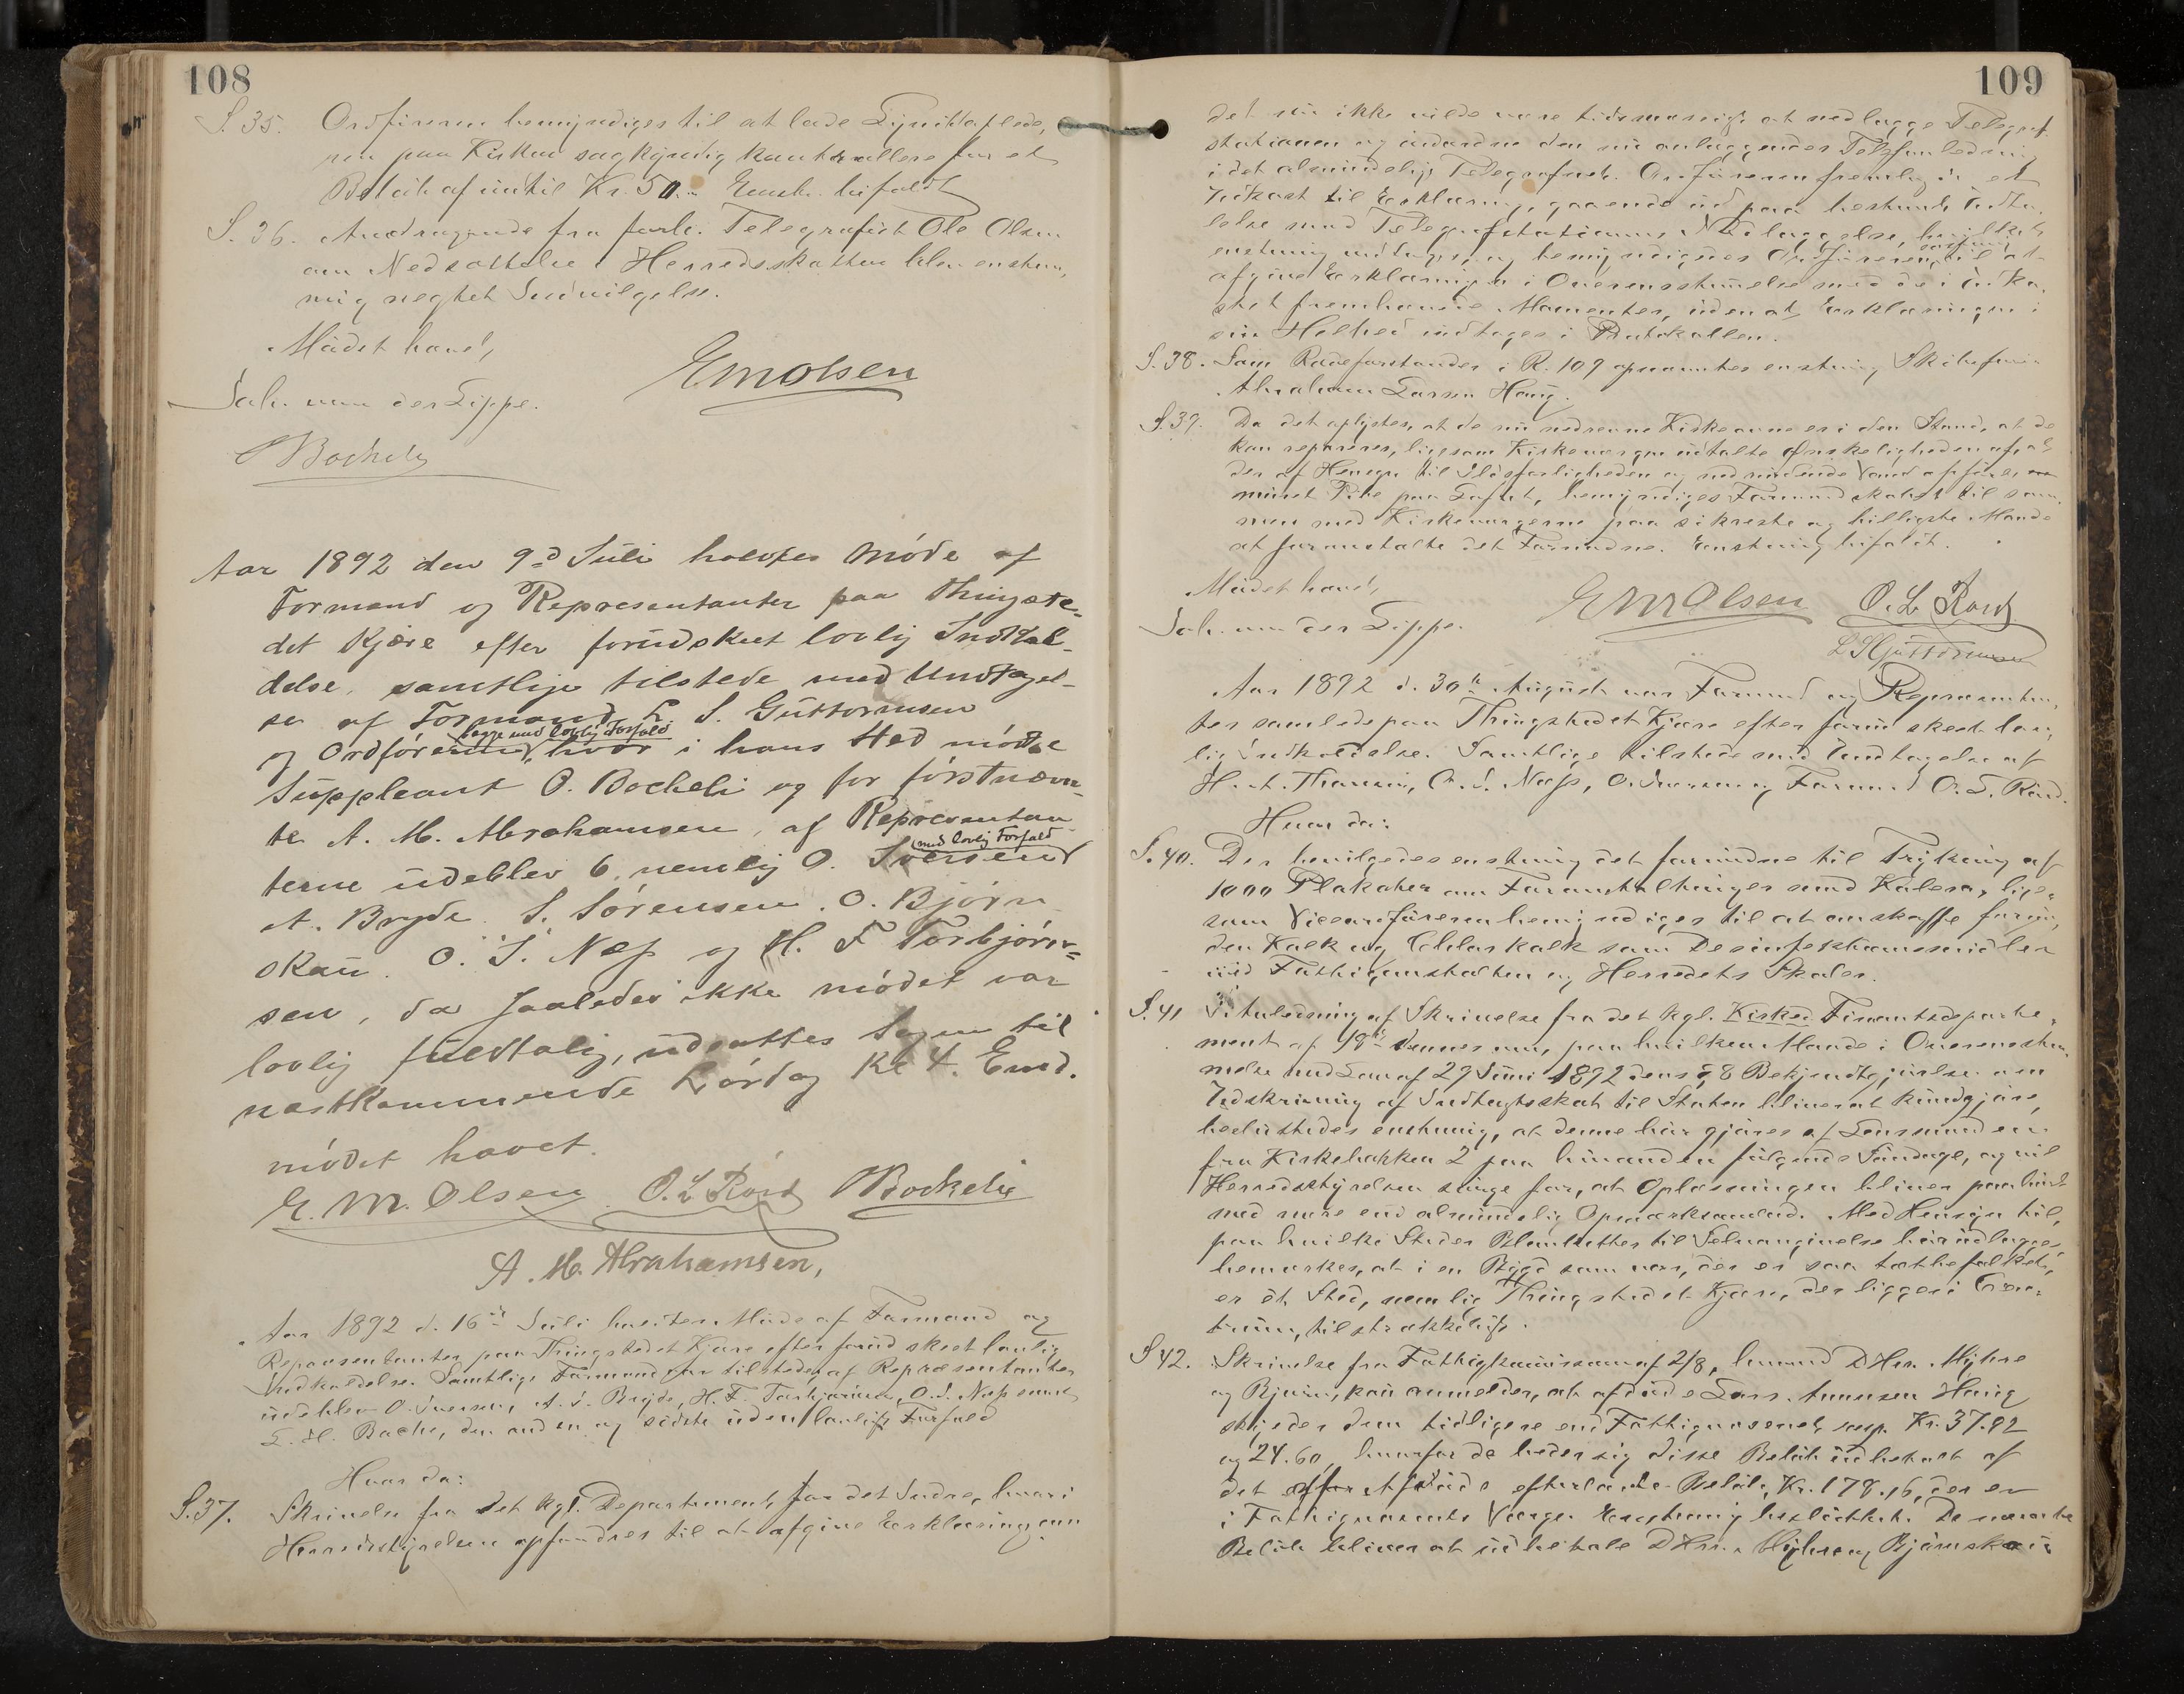 108
S. 35. Ordföreren bemyndiges til at lade Lynafledere,
ren paa Kirken sagkyndig kontrollere for et
Belöb af indtil Kr. 50.- Enst. bifaldt
S. 36. Andragende fra forh. Telegrafist Ole Olsen
om Nedsættelse i Herredsskatten blev enstem,
mig negtet Indvilgelse.
Mödet hævet,
Jah. van der Lippe.
EMOlsen
OBockely
Aar 1892 den 9d Juli holdtes Möde af
Formænd og Representanter paa Thingste-
det Kjære efter forudskeet lovlig Indkal-
delse, samtlige tilstede med Undtagel-
se af Formand L. S. Guttormsen
begge med lovlig Forfald
og Ordföreren, hvor i hans Sted mödte
Suppleant O. Bockeli og for förstnævn-
te A. M. Abrahamsen, af Representan-
med lovlig Forfald
terne udeblev 6, nemlig O. Iversen
A. Bryde. S. Sörensen. O. Björn
skau. O. J. Næss og H. F Torbjörn-
sen, da saaledes ikke mödet var
lovlig fuldtalig, udsattes Sagen til
næstkommende Lördag Kl 4. Emd.
mödet hævet.
E. M. Olsen O. L Röed OBockelie
A. M. Abrahamsen,
Aar 1892 d. 16d Juli holdtes Möde af Formænd og
Repræsentanter paa Thingstedet Kjære efter forud skeet lovlig
Indkaldelse. Samtlige Formænd var tilstede, af Repræsentanter
udeblev O. Iversen, A. J. Bryde, H. F. Torbjörnsen, O. J. Næss samt
L. H. Bache, den anden og sidste uden lovligt Forfald
Hvor da:
S. 37. Skrivelse fra det kgl. Departement for det Indre, hvori
Herredsstyrelsen opfordres til at afgive Erklæring om
109
det nu ikke vilde være tidsmæssigt at nedlægge Telegraf
stationen og indordne den nu anlæggendes Telefonledning
i det almindelige Telegrafnet. Ordföreren fremlagde et
Udkast til Erklæring, gaaende ud paa bestemt Udta-
lelse mod Telegrafstationens Nedlæggelse, hvilket
enstemmig vedtoges, og bemyndigedes Ordföreren til at
afgive Erklæringen i Overensstemmelse med de i Udka-
stet fremhævede Momenter, uden at Erklæringen i
sin Helhed indtages i Protokollen.
S. 38. Som Rodeforstander i R. 109 opnævntes enstemmig Skibsförer
Abraham Larsen Haug.
S. 39. Da det oplystes, at de nu nedrevne Kirkeovne er i den Stand, at de
kan repareres, ligesom Kirkeværgen udtalte Önskeligheden af, at
der af Hensyn til Ildsfarligheden og nedrindende Vand opföres
muret Pibe paa Loftet, bemyndiges Formandskabet til sam-
men med Kirkeværgerne paa sikreste og billigste Maade
at foranstalte det Fornödne. Enstemmig bifaldt.
Mödet hævet,
Jah. van der Lippe.
EMOlsen O. L Röed
L S Guttormsen
Aar 1892 d. 30te August var Formænd og Repræsentan,
ter samlede paa Thingstedet Kjære efter forud skeet lov,
lig Indkaldelse. Samtlige tilstede med Undtagelse af
H. A. Thoresen, O. J. Næss, O. Iversen og Formand O. L. Röed.
Hvor da:
S. 40. Der bevilgedes enstemmig det fornödne til Trykning af
1000 Plakater om Foranstaltninger mod Kolera, lige-
som Viceordföreren bemyndiges til at anskaffe fornö,
den Kalk og Chlorkalk som Desinfektionsmidler
ved Fattiganstalten og Herredets Skoler.
S. 41 I Anledning af Skrivelse fra det kgl. Finantsdeparte-
ment af 18de dennes om, paa hvilken Maade i Overensstem-
melse med Lov af 29 Juni 1892 dens § 8 Bekjendtgjörelse om
Udskrivning af Indtægtsskat til Staten bliver at kundgjöre,
besluttedes enstemmig, at denne bör gjöres af Lensmanden
fra Kirkebakken 2 paa hinanden fölgende Söndage, og vil
Herredsstyrelsen sörge for, at Oplæsningen bliver paahört
med mere end almindelig Opmærksomhed. Med Hensyn til,
paa hvilke Steder Blanketter til Selvangivelse bör udlægges,
bemærkes, at i en Bygd som vor, der er saa tætbefolket,
er et Sted, nemlig Thingstedet Kjære, der ligger i Cen-
trum, tilstrækkeligt.
S 42. Skrivelse fra Fattigkommissionen af 2/8, hvorved D Hrr. Myhre
og Björnskau anmelder, at afdöde Lars Amunsen Haug
skylder dem tidligere end Fattigvæsenet resp. Kr. 37.92
og 24.60, hvorfor de beder sig disse Belöb udbetalt af
det af Afdöde efterladte Belöb, Kr. 178.16, der er
i Fattigvæsenets Værge. Enstemmig besluttet: De nævnte
Belöb bliver at udbetale D Hrr. Myhre og Björnskau